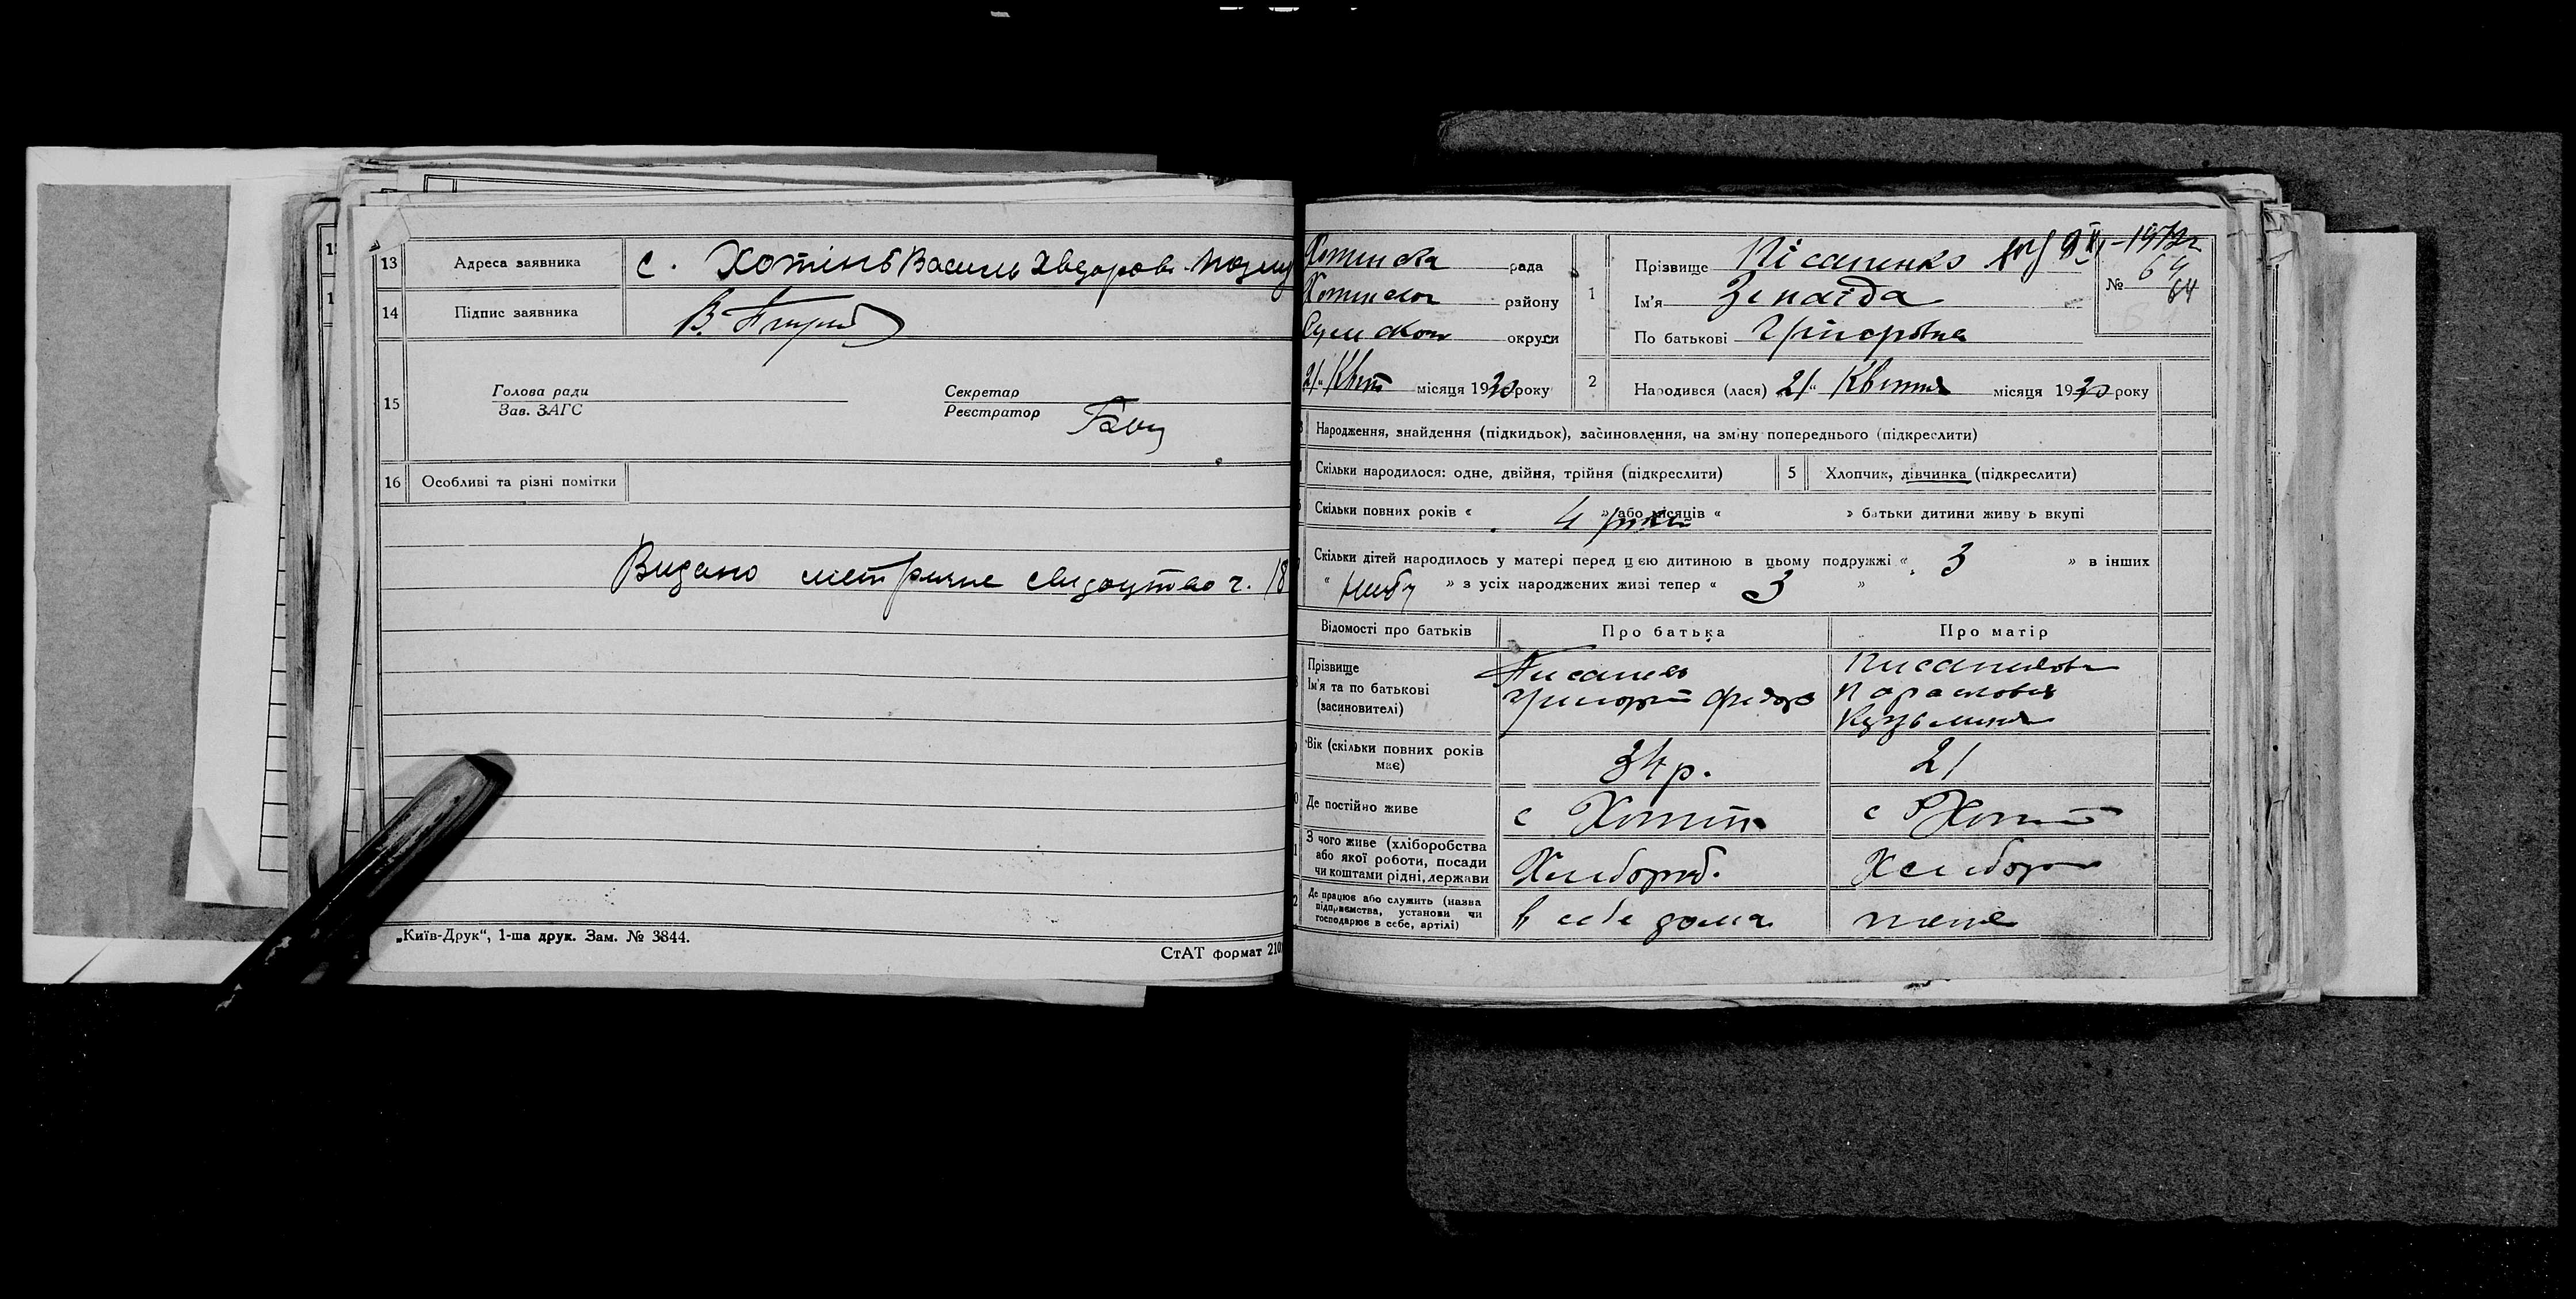 13 Адреса заявника с. Хотінь Василь Хведоров.
14 Підпис заявника В.
15 Голова ради Секретар
Зав. ЗАГС Реєстратор
16 Особливі та різні помітки
Видано метричне свидоцтво ч. 18
„Київ-Друк“, 1-ша друк. Зам. № 3844.
СтАТ формат 210
Хотинська рада
Хотинског району
Сумской округи
21 Квіт місяця 1930 року
1 Прізвище Пісаненко
Ім'я Зенаїда
По батькові Грігорівна
№ 64
64
2 Народився (лася) 21 Квітня місяця 1930 року
Народження, знайдення (підкидьок), засиновлення, на зміну попереднього (підкреслити)
Скільки народилося: одне, двійня, трійня (підкреслити) 5 Хлопчик, дівчинка (підкреслити)
Скільки повних років « 4 роки » або місяців « » батьки дитини живуть вкупі
Скільки дітей народилось у матері перед цією дитиною в цьому подружжі « 3 » в інших
« » з усіх народжених живі тепер « 3 »
Відомості про батьків Про батька Про матір
Прізвище
Ім'я та по батькові
(засиновителі)
Григорій Федор
Парасковья
Кузьминя
Вік (скільки повних років має) 34 р. 21
Де постійно живе с Хотинь с Хотинь
З чого живе (хліборобства
або якої роботи, посади
чи коштами рідні, держави
Хлибороб. Хлибор
Де працює або служить (назва
підприємства, установи чи
господарює в себе, артілі)
в себе дома